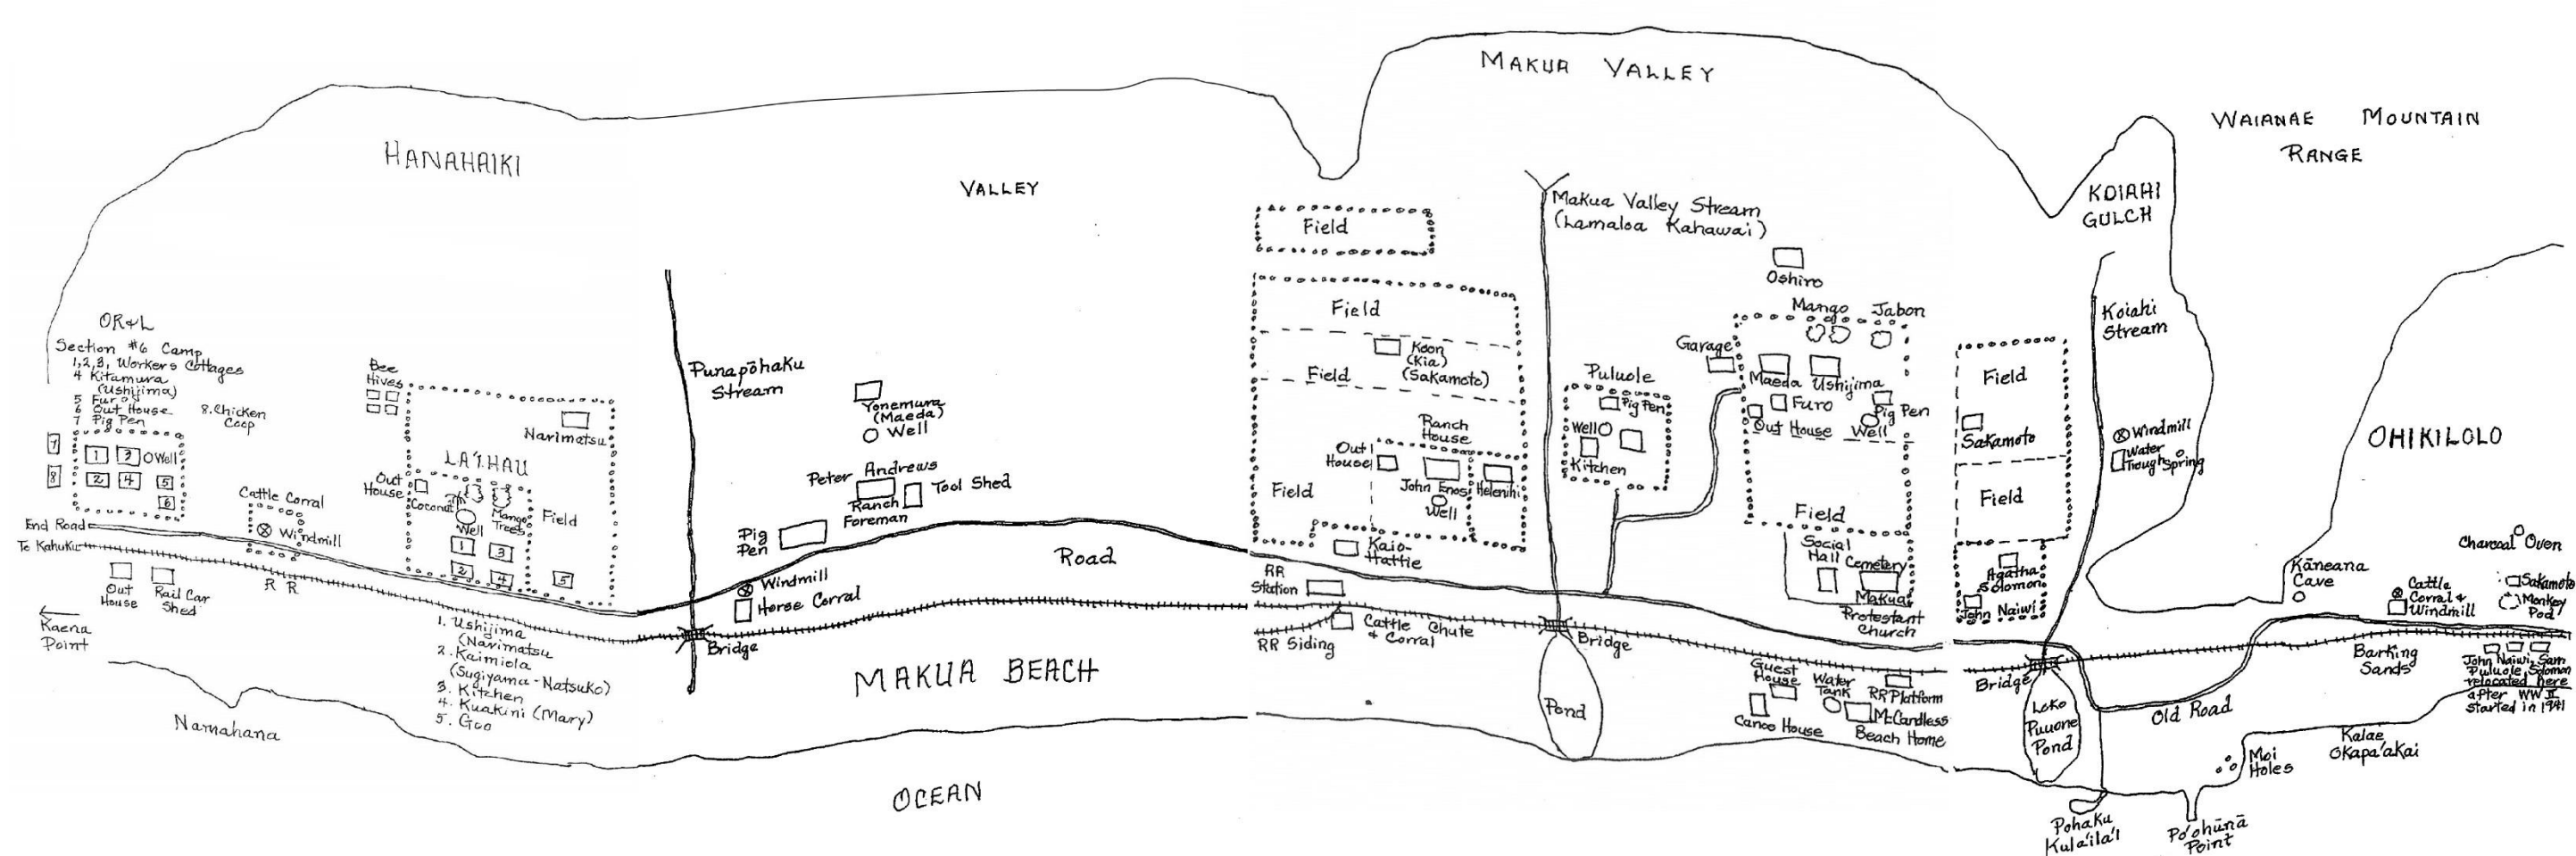 MAKUA VALLEY
WAIANAE MOUNTAIN
RANGE
HANAHAIKI
VALLEY
KOIAHI
GULCH
Makua Valley Stream
(Lamaloa Kahawai)
Field
Oshiro
Mango
Jabon
Field
Koiahi
Stream
OR&L
Section #6 Camp
1,2,3, Workers Cottages
4 Kitamura
(Ushijima)
5 Furo
6 Out House
7 Pig Pen
8. Chicken
Coop
7
8
1
3
Well
2
4
5
6
End Road
To Kahuku
Out
House
Rail Car
Shed
Kaena
Point
Namahana
Cattle Corral
Windmill
R R
Bee
Hives
Narimatsu
LA'I HAU
Out
House
Coconut
Well
Mango
Trees
Field
1
3
2
4
5
1. Ushijima
(Narimatsu
2. Kaimiola
(Sugiyama-Natsuko)
3. Kitchen
4. Kuakini (Mary)
5. Goo
Punapōhaku
Stream
Yonemura
(Maeda)
Well
Peter Andrews
Ranch
Foreman
Tool Shed
Pig
Pen
Windmill
Horse Corral
Bridge
Road
MAKUA BEACH
OCEAN
Koon
(Kia)
(Sakamoto)
Field
Ranch
House
Out
House
John Enos
Helenihi
Well
Field
Kaio-
Hattie
RR
Station
RR Siding
Cattle Chute
& Corral
Bridge
Pond
Puluole
Pig Pen
Well
Kitchen
Garage
Maeda
Ushijima
Furo
Pig Pen
Out House
Well
Field
Social
Hall
Cemetery
Makua
Protestant
Church
Guest
House
Water
Tank
RR Platform
McCandless
Beach Home
Canoe House
Field
Sakamoto
Field
Agatha
Solomon
John Naiwi
Windmill
Water
Trough
Spring
Bridge
Loko
Puuone
Pond
Old Road
Pohaku
Kula'ila'i
Po'ohūnā
Point
Moi
Holes
Kalae
Okapa'akai
OHIKILOLO
Kāneana
Cave
Cattle
Corral &
Windmill
Charcoal Oven
Sakamoto
Monkey
Pod
Barking
Sands
John Naiwi, Sam
Puluole, Solomon
relocated here
after WW II
started in 1941